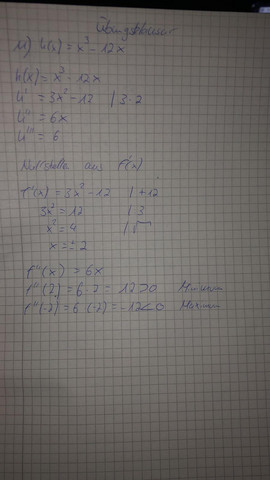 Übungsklausur
11) h(x) = x³ - 12x
h(x) = x³ - 12x
h' = 3x² - 12 | 3·2
h'' = 6x
h''' = 6
Nullstelle aus f'(x)
f'(x) = 3x² - 12 | +12
3x² = 12 | 3
x² = 4 | √
x = ± 2
f''(x) = 6x
f''(2) = 6·2 = 12 > 0 Minimum
f''(-2) = 6·(-2) = -12 < 0 Maximum